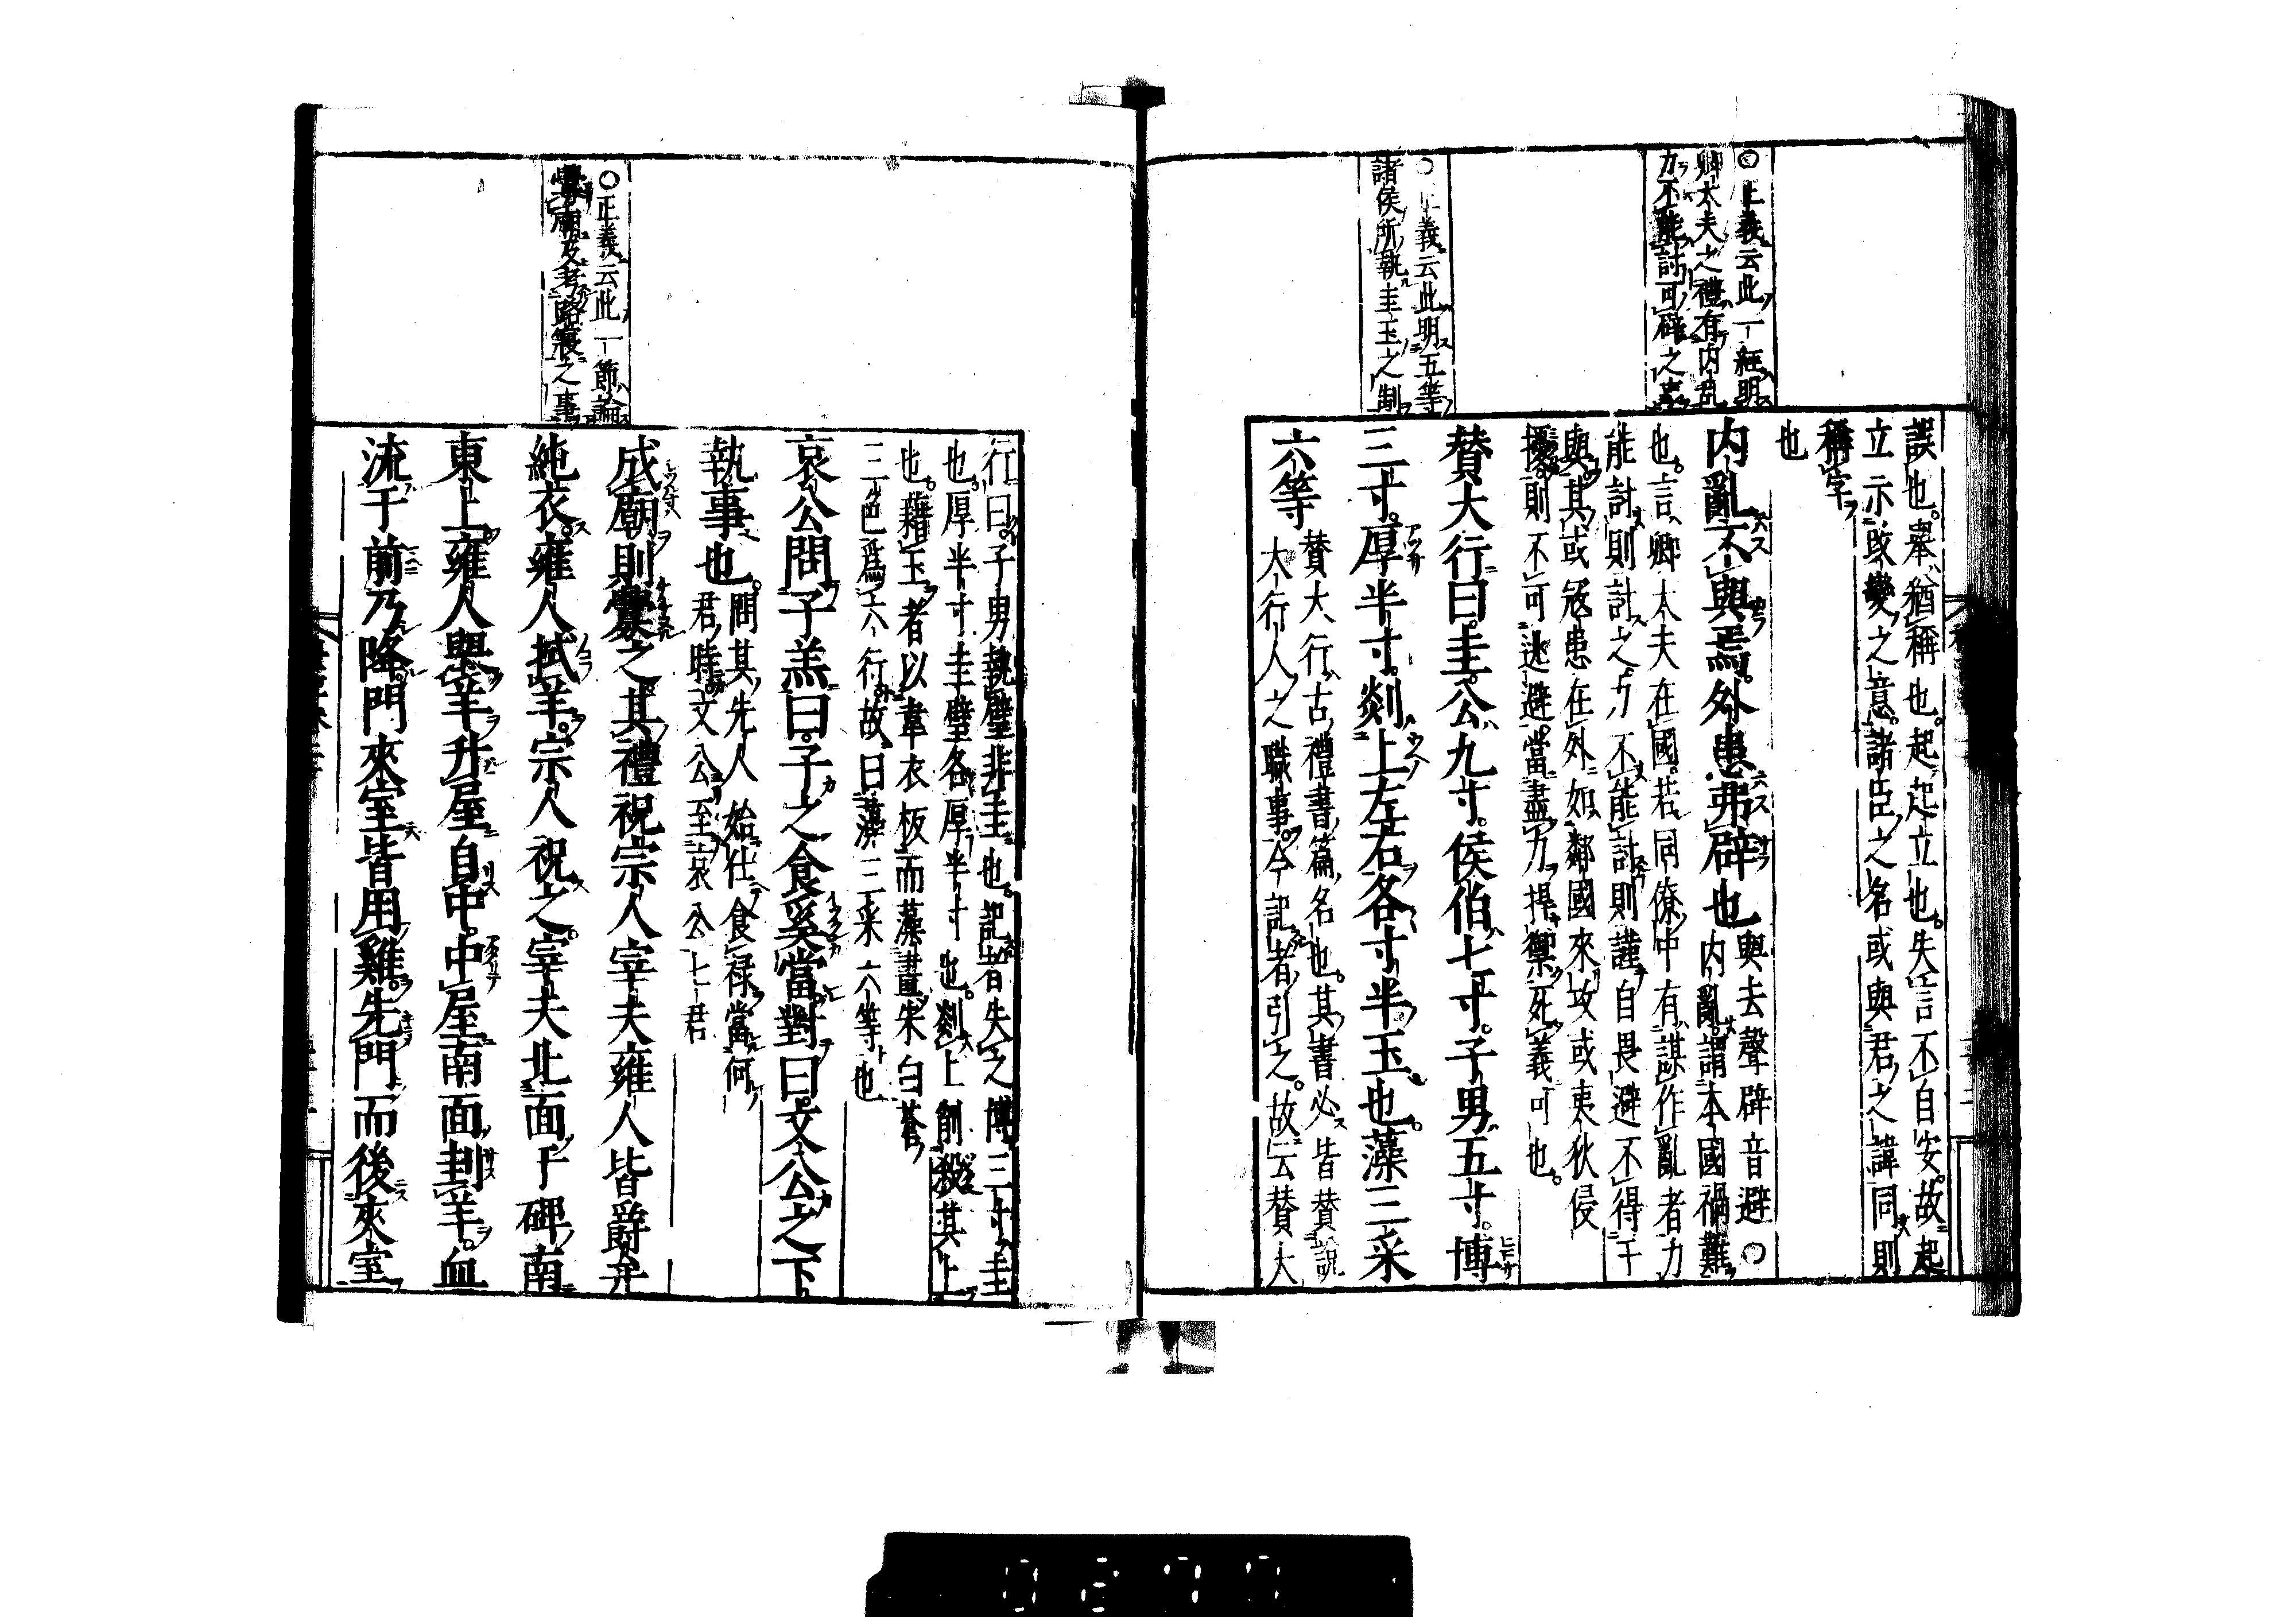 ○正義云此一經明
卿太夫之禮有内乱
力不能討可辟之事
○正義云此明五等
諸侯所執圭玉之制
誤也。擧猶稱也。起起立也。失言不自安。故起
立示改變之意。諸臣之名或與君之諱同則
稱字
也
内亂不與焉。外患弗辟也 與去聲辟音避○
内亂。謂本國禍難
也。言卿太夫在國。若同僚中有謀作亂者力
能討則討之。力不能討則謹自畏避不得干
與其或冦患在外如鄰國來攻或夷狄侵
擾。則不可逃避。當盡力捍禦死義可也。
賛大行曰。圭。公九寸。侯伯七寸。子男五寸。博
三寸。厚半寸。剡上左右各寸半。玉也。藻三采
六等 賛大行。古禮書篇名也。其書必皆賛説
大行人之職事。今記者引之。故云賛大
○正義云此一節論
釁廟及考路寢之事
行曰。子男執璧非圭也。記者失之博三寸圭
也。厚半寸圭璧各厚半寸也。剡上削殺其上
也。藉玉者以韋衣板而藻畫朱白蒼
三色爲六行。故曰藻三采六等也
哀公問子羔曰。子之食奚當。對曰。文公之下
執事也。 問其先人始仕食禄當何
君時文公至哀公七君
成廟則釁之其禮祝宗人宰夫雍人皆爵弁
純衣。雍人拭羊。宗人祝之。宰夫北面于碑南
東上雍人舉羊升屋自中。中屋南面刲羊。血
流于前乃降。門夾室皆用雞。先門而後夾室